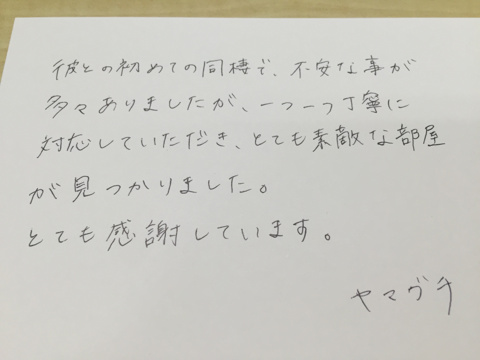 彼との初めての同棲で、不安な事が
多々ありましたが、一つ一つ丁寧に
対応していただき、とても素敵な部屋
が見つかりました。
とても感謝しています。
ヤマグチ